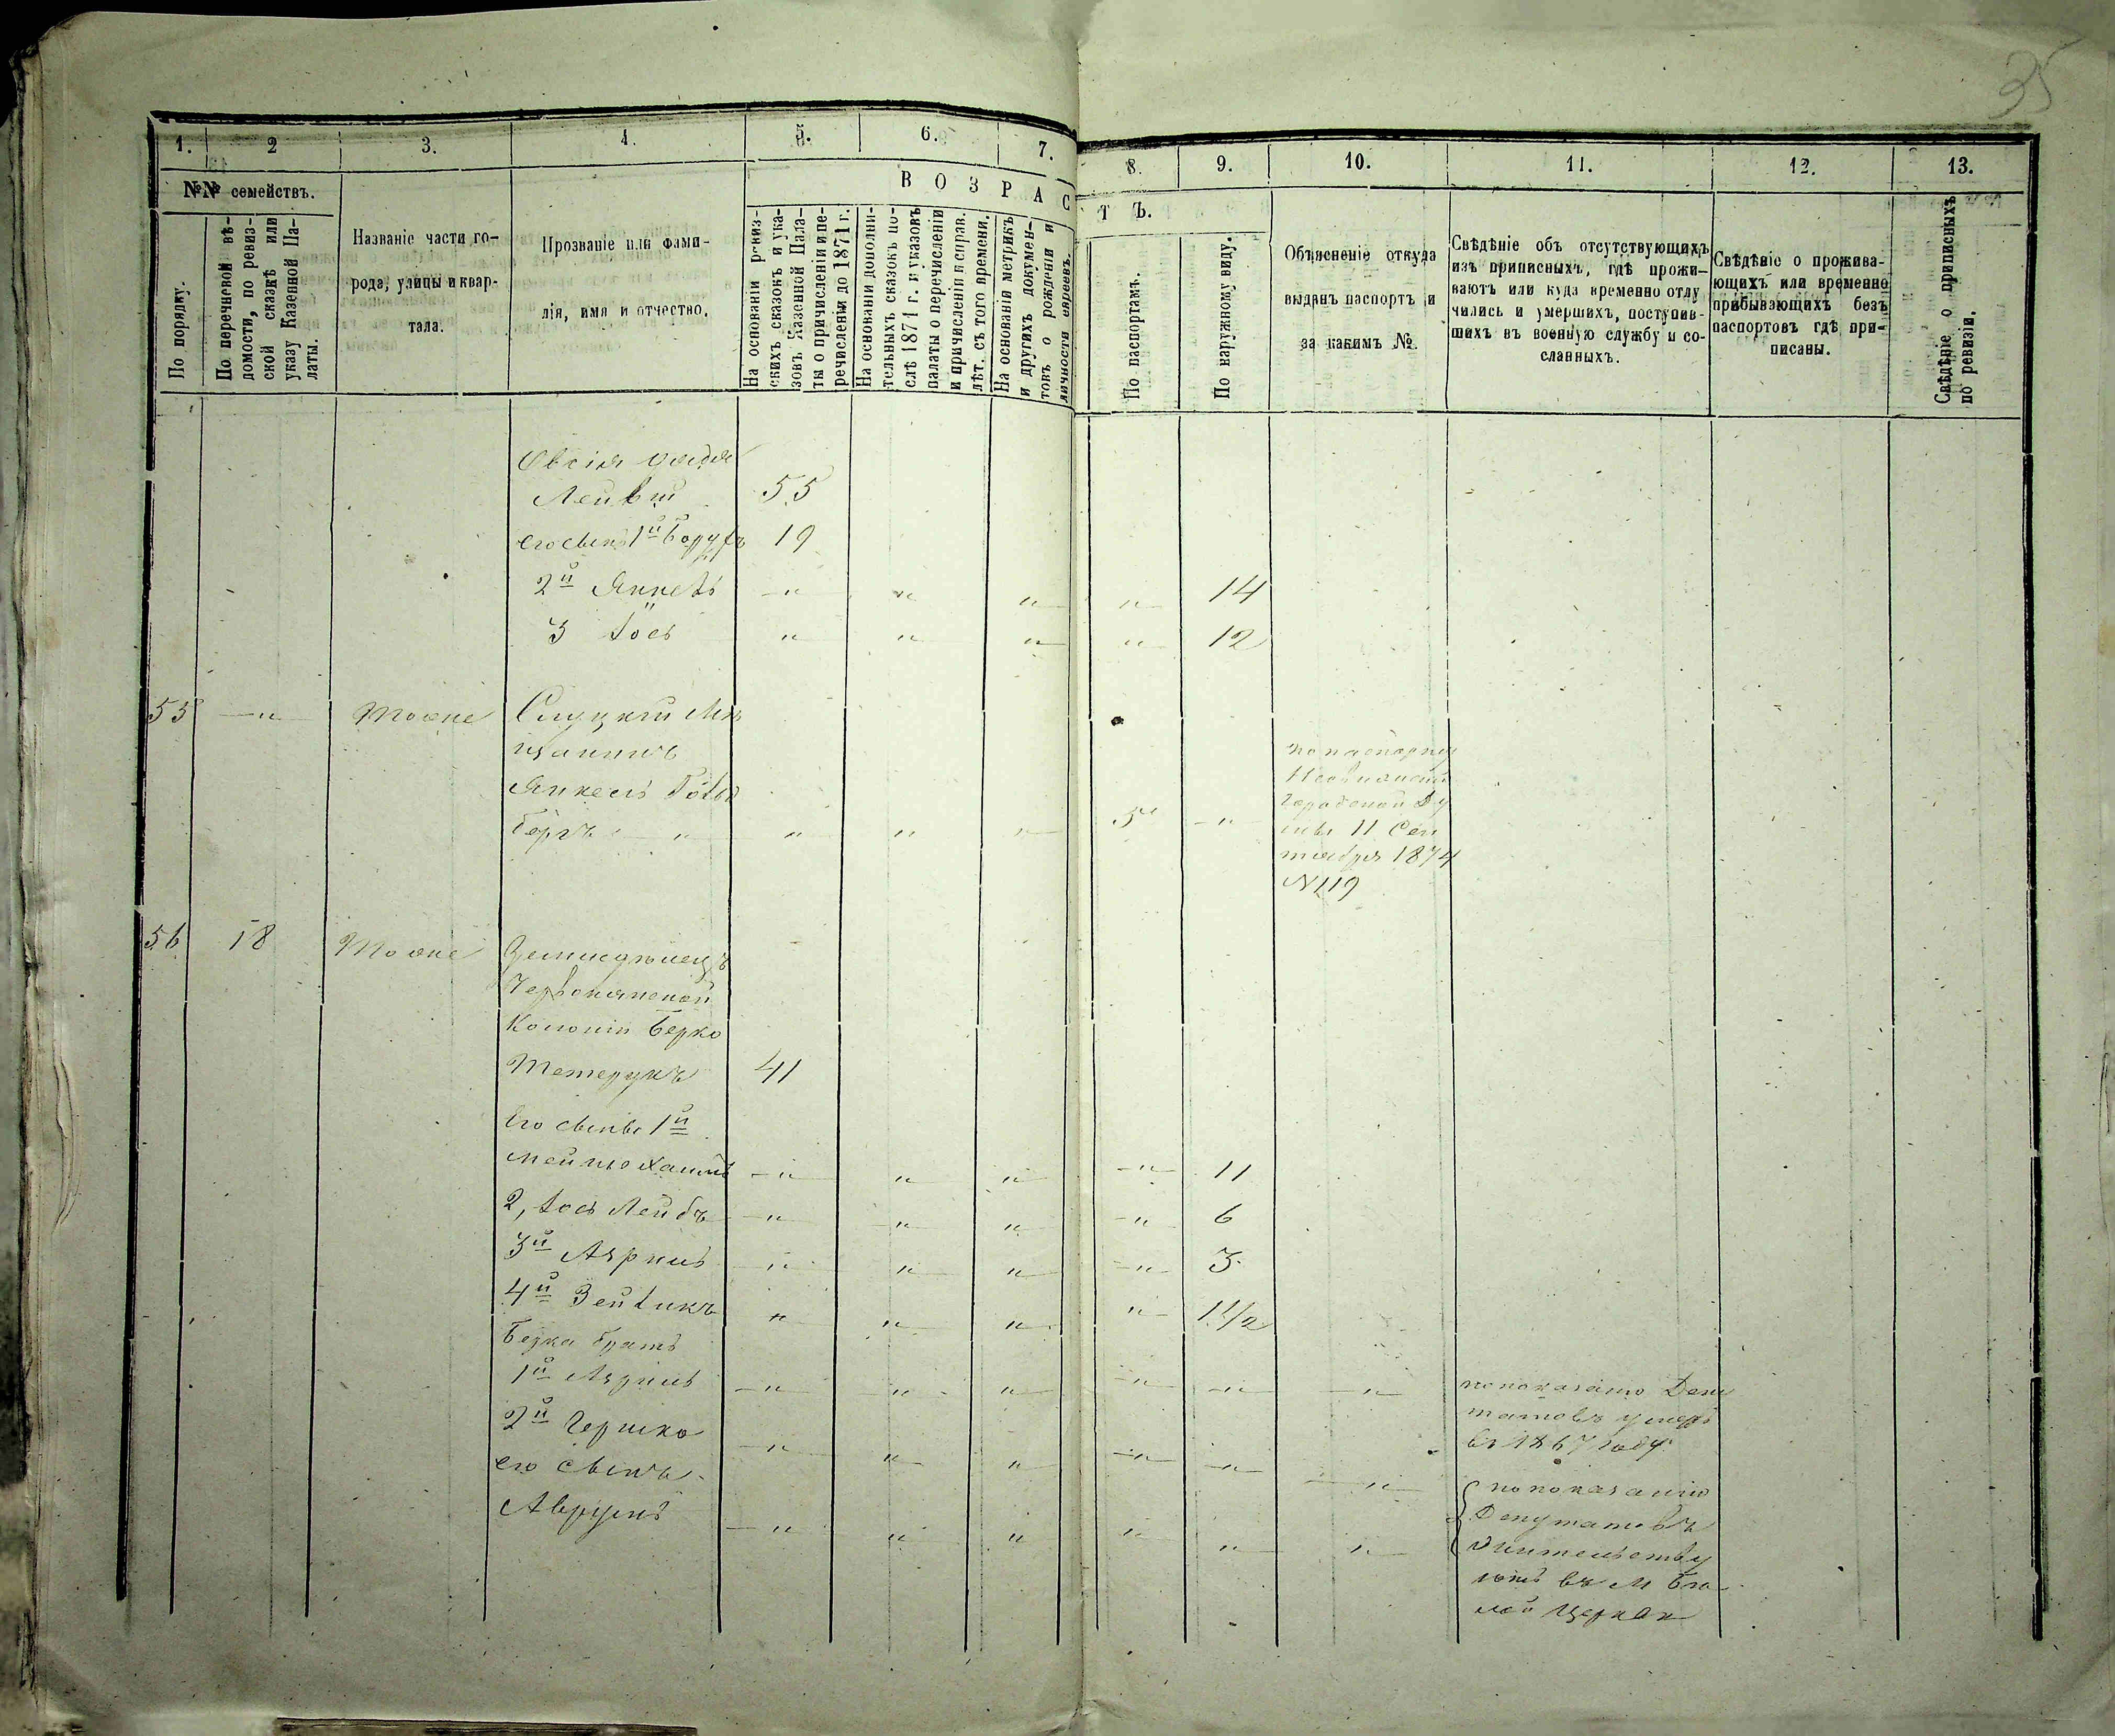 35
1. 2 3. 4. 5. 6. 7. 8. 9. 10. 11. 12. 13.
№№ семействъ.
По порядку.
По перечневой вѣ-
домости, по ревиз-
ской сказкѣ или
указу Казенной Па-
латы.
Названіе части го-
рода, улицы и квар-
тала.
Прозваніе или фами-
лія, имя и отчество.
ВОЗРАСТЪ.
На основаніи ревиз-
скихъ сказокъ и ука-
зовъ Казенной Пала-
ты о причисленіи и пе-
речисленіи до 1871 г.
На основаніи дополни-
тельныхъ сказокъ по-
слѣ 1871 г. и указовъ
палаты о перечисленіи
и причисленіи и справ.
лѣт. съ того времени.
На основаніи метрикъ
и другихъ докумен-
товъ о рожденіи и
личности евреевъ.
По паспортамъ.
По наружному виду.
Объясненіе откуда
выданъ паспортъ и
за какимъ №.
Свѣдѣніе объ отсутствующихъ
изъ приписныхъ, гдѣ прожи-
ваютъ или куда временно отлу
чились и умершихъ, поступив-
шихъ въ военную службу и со-
сланныхъ.
Свѣдѣніе о прожива-
ющихъ или временно
прибывающихъ безъ
паспортовъ гдѣ при-
писаны.
Свѣдѣніе о приписныхъ
по ревизіи.
Овсія дядя
Лейвій 55
его сынъ 1й Борухъ 19
2й Янкель -"- " " " 14
3 Іось " " " " 12
55 -"- Тоже Слуцкій Мѣ
щанинъ
Янкель
бергъ " " " " -"-
по паспорту
Городской Ду
мы 11 Сен
тября 1874
№119
56 18 Тоже Земледѣлецъ
Колоніи Берко
Тетерукъ 41
Его сынъ 1й
-"- " " -"- 11
2, Іось Лейбъ -"- " " -"- 6
3й Аронъ " " " -"- 3
4й Зейликъ " " " " 1 1/2
Берка братъ
1й Аронъ -"- " " -"- -"- -"-
попоказанію Депу
татовъ умеръ
въ 1867 году
2й Гершко -"- " " -"- -"- -"-
его сынъ
Аврумъ -"- " " " " "
попоказанію
Депутатовъ
жительству
ютъ въ М Бѣ
лой Церкви